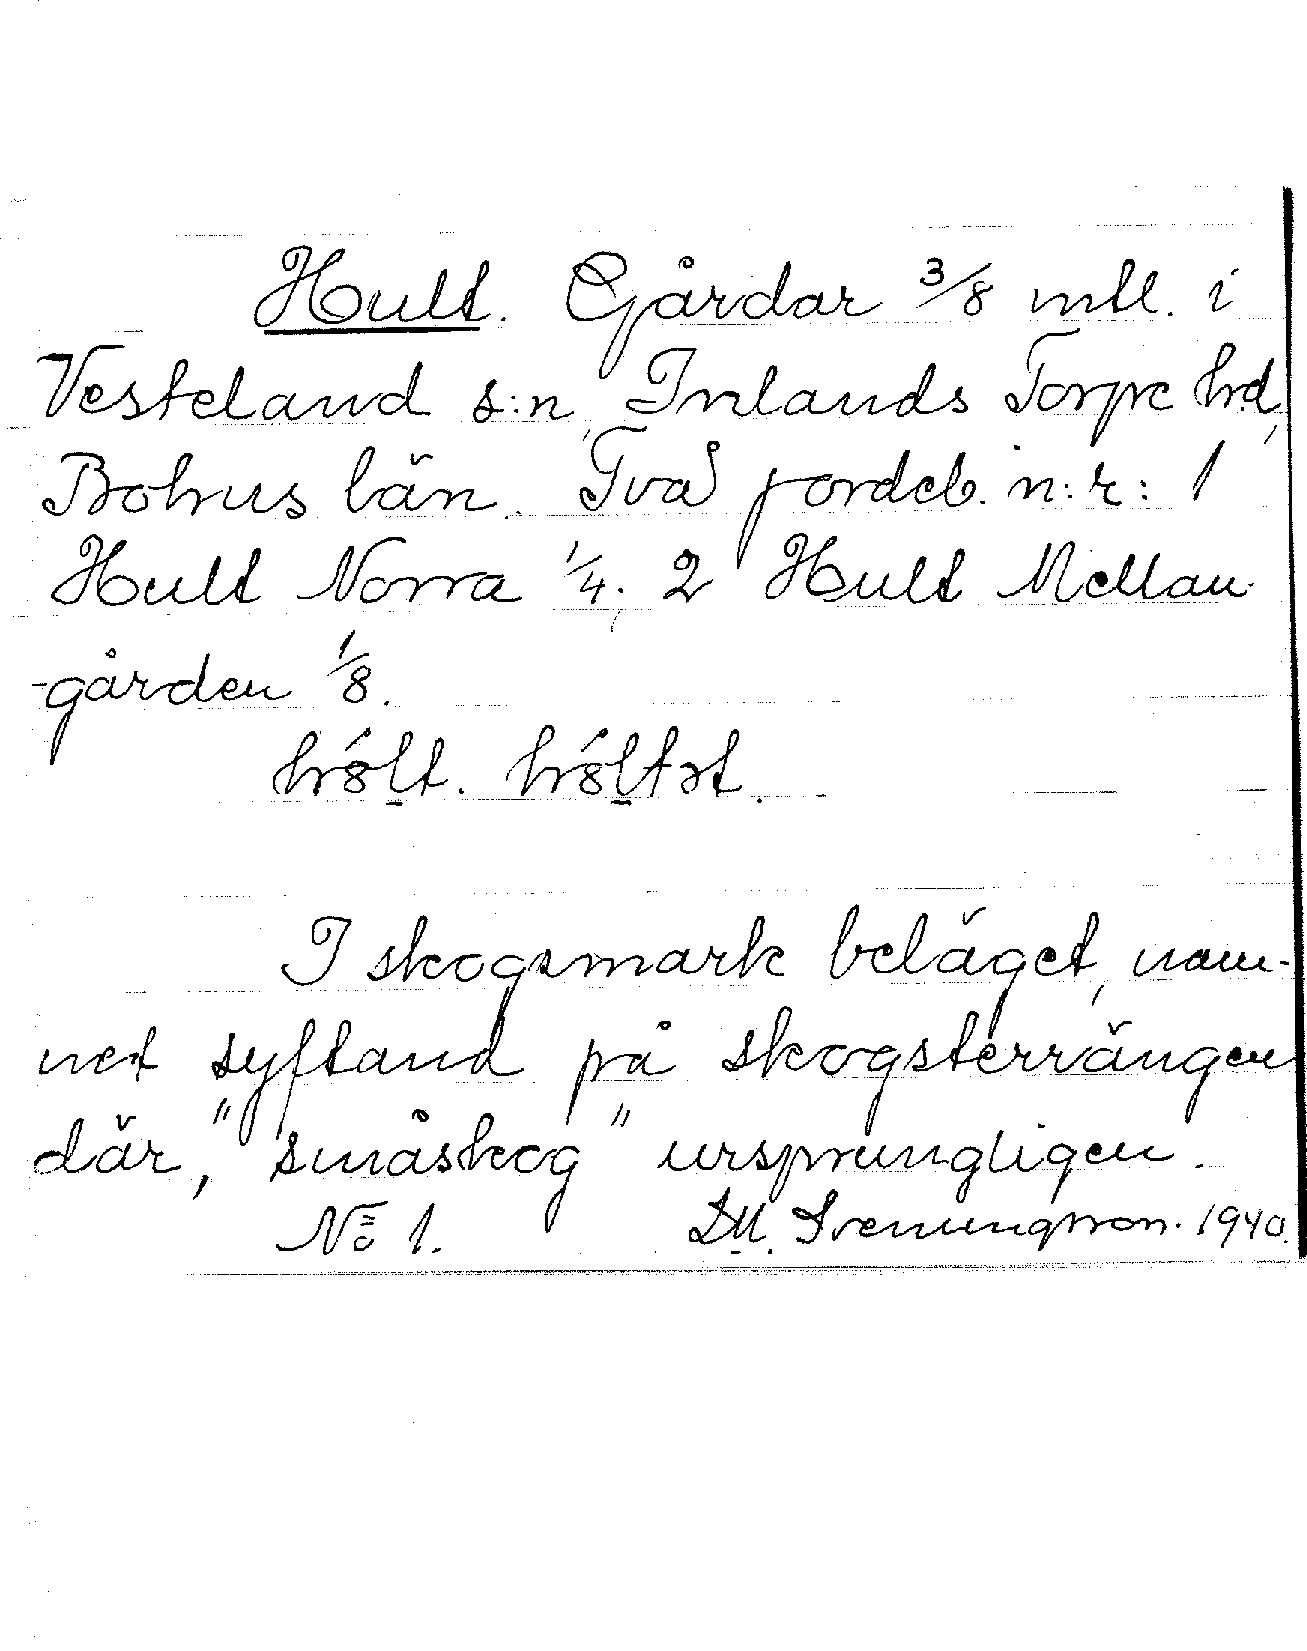 Hult. Gårdar 3/8 mtl. i
Vesterland s:n, Inlands Torpe hrd,
Bohus län. Två jordeb. n:r: 1
Hult Norra 1/4. 2 Hult Mellan-
gården 1/8.
I skogsmark beläget, nam-
net syftand på skogsterrängen
där, "småskog" ursprungligen.
No 1. D.M. Svenungsson. 1940.